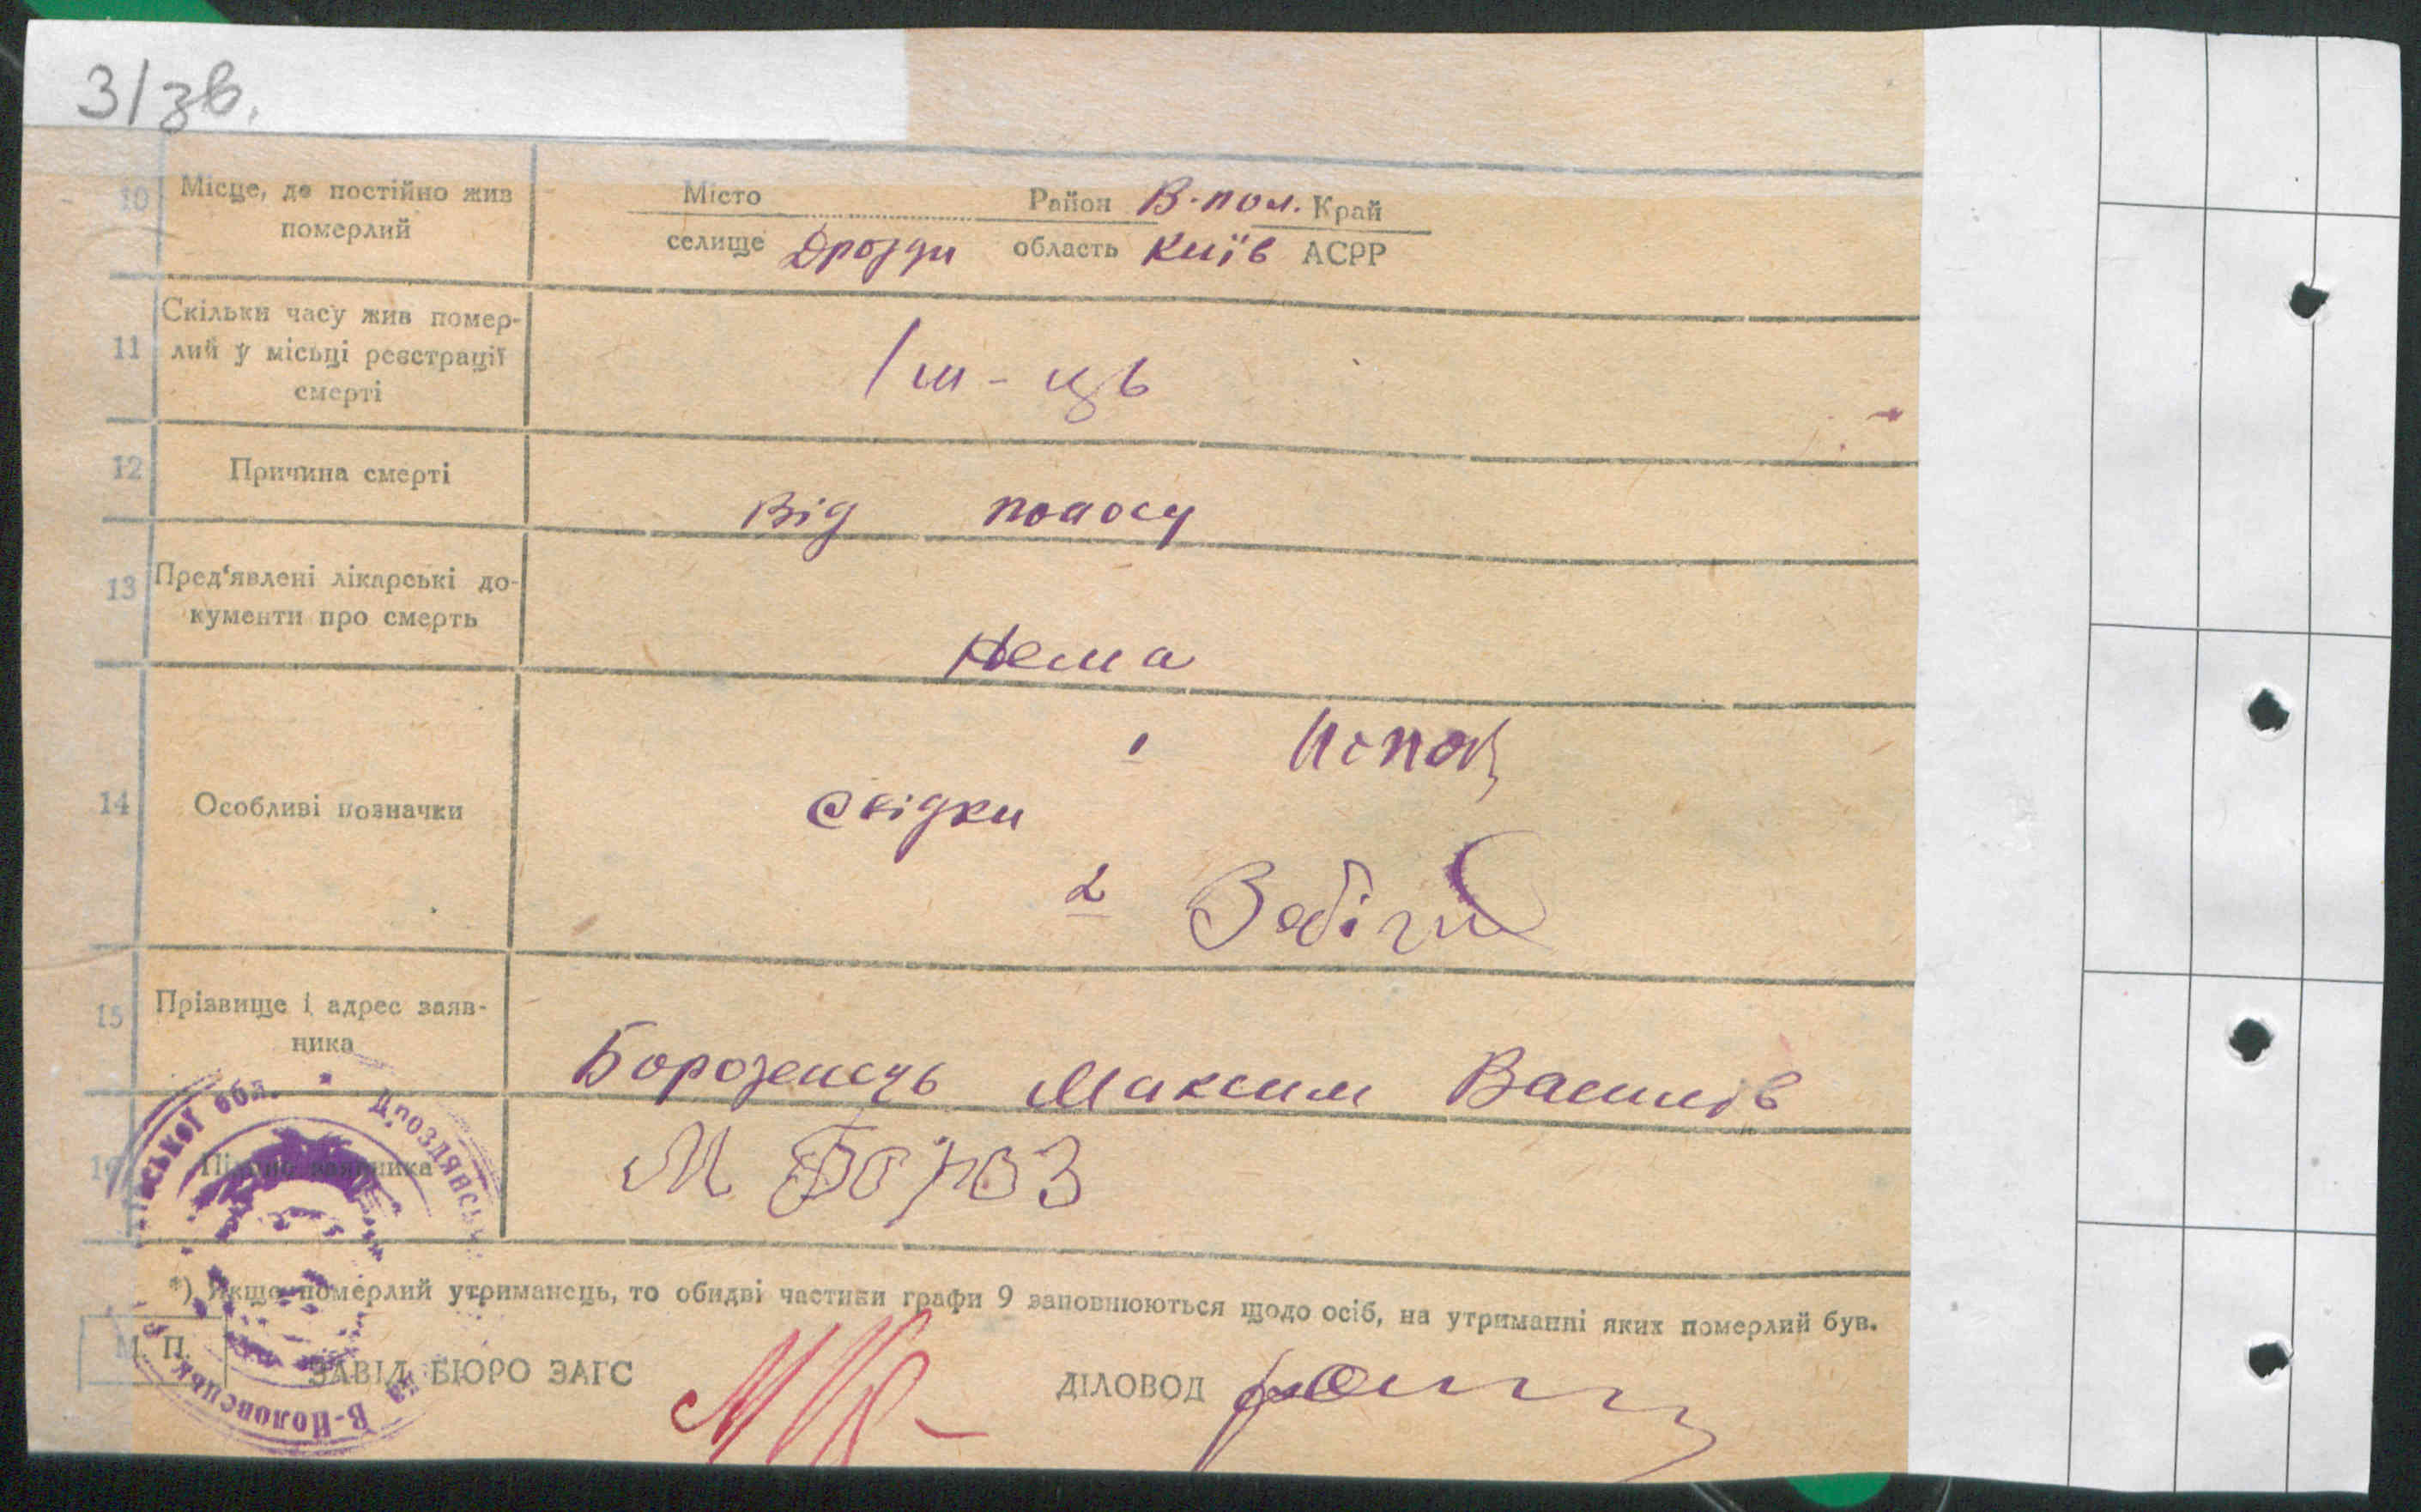 3/зв.
10 Місце, де постійно жив померлий
Місто Район В-пол. Край
селище Дрозди область Київ АСРР
11 Скільки часу жив помер-
лий у місьці реєстрації
смерті
1 м-ць
12 Причина смерті
від поносу
13 Пред'явлені лікарські до-
кументи про смерть
Нема
14 Особливі позначки
Свідки
1
2
15 Прізвище і адрес заяв-
ника
Борозенець Максим Василів
16 Підпис заявника
М Бороз
*) Якщо померлий утриманець, то обидві частини графи 9 заповнюються щодо осіб, на утриманні яких померлий був.
М. П.
ЗАВІД БЮРО ЗАГС
ДІЛОВОД
ської обл. * Дроздянськ
В-Половецьк